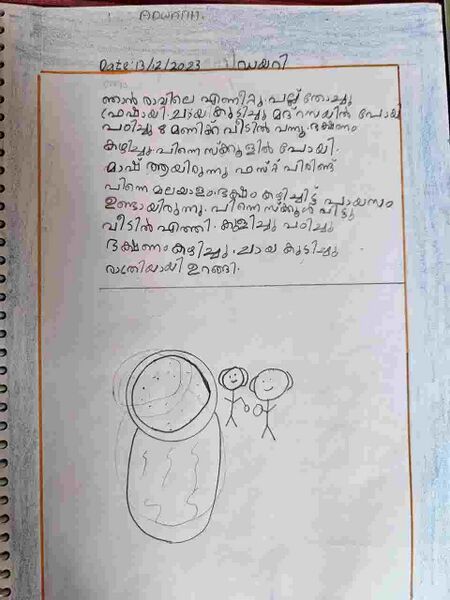 ADWAITH.
Date:13/12/2023 ഡയറി
ഞാൻ രാവിലെ എണീറ്റു പല്ല് തേച്ചു
ഫ്രഷായി ചായ കുടിച്ചു മദ്റസയിൽ പോയി
പഠിച്ചു 8 മണിക്ക് വീട്ടിൽ വന്നു. ഭക്ഷണം
കഴിച്ചു. പിന്നെ സ്ക്കൂളിൽ പോയി.
മാഷ് ആയിരുന്നു ഫസ്റ്റ് പിരീഡ്
പിന്നെ മലയാളം. ഭക്ഷണം കഴിച്ചിട്ട് പായസം
ഉണ്ടായിരുന്നു. പിന്നെ സ്ക്കൂൾ വിട്ടു
വീട്ടിൽ എത്തി. കുളിച്ചു പഠിച്ചു
ഭക്ഷണം കഴിച്ചു. ചായ കുടിച്ചു
രാത്രിയായി ഉറങ്ങി.